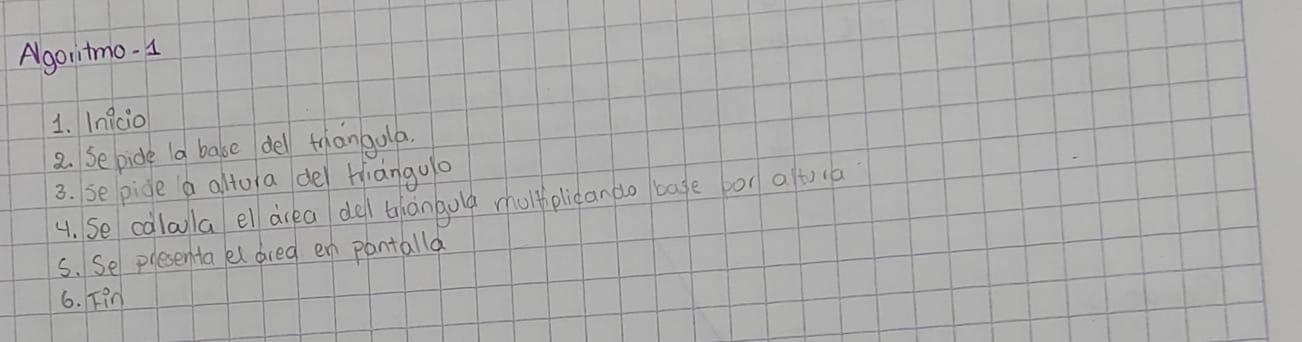 Algoritmo-1
1. Inicio
2. Se pide la base del triángula.
3. Se pide la altura del triángulo
4. Se calcula el área del triángulo multiplicando base por altura
5. Se presenta el área en pantalla
6. Fin